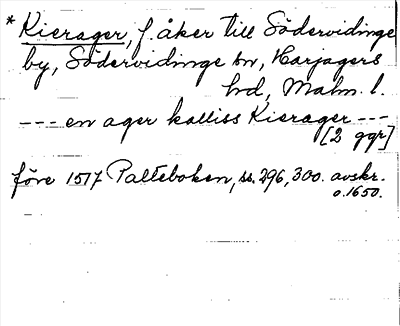 * Kierager, f åker till Södervidinge
by, Södervidinge sn, Harjagers
hd, Malm. l.
--- en ager kalliss Kierager ---
[2 ggr]
före 1517 Palteboken, ss. 296, 300. avskr.
o. 1650.